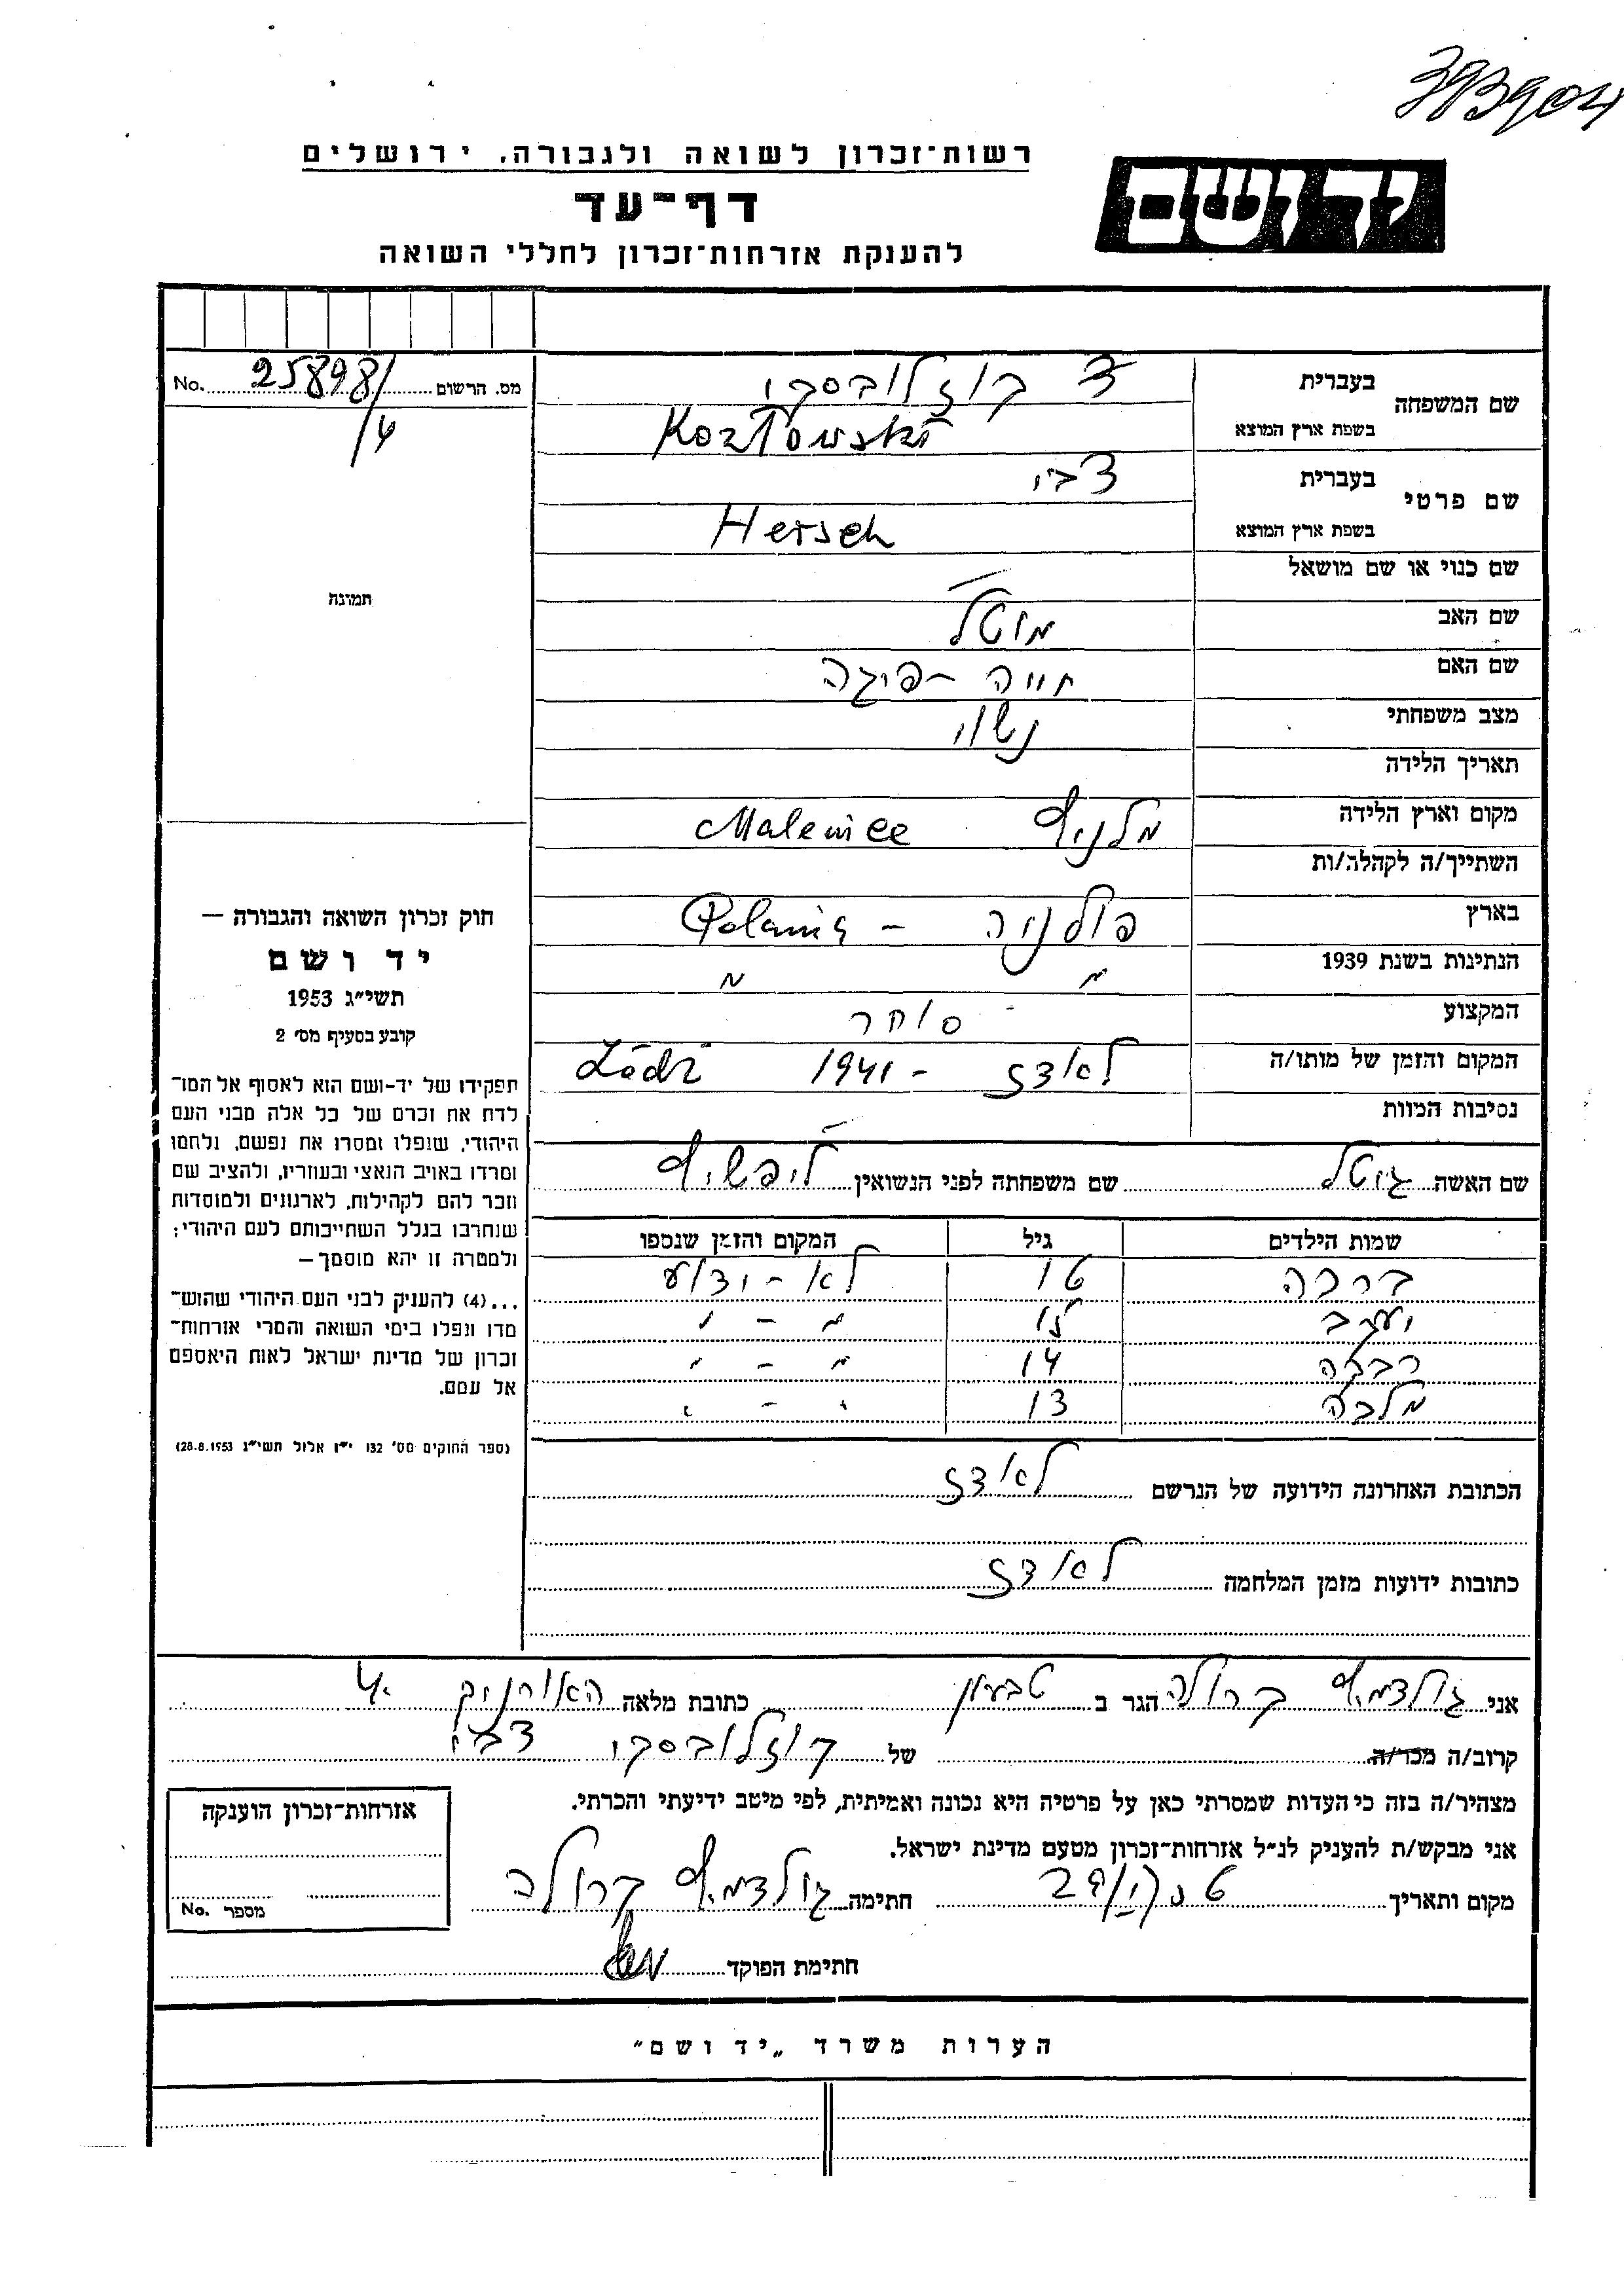 393904
רשות־זכרון לשואה ולגבורה, ירושלים
יד ושם
דף־עד
להענקת אזרחות־זכרון לחללי השואה
מס. הרשום 25898/ No.
/4
תמונה
שם המשפחה בעברית קוזלובסקי
בשפת ארץ המוצא Kozłowski
שם פרטי בעברית צבי
בשפת ארץ המוצא Hersch
שם כנוי או שם מושאל —
שם האב מוטל
שם האם חווה - פיגה
מצב משפחתי נשוי
תאריך הלידה
מקום וארץ הלידה Malenice
השתייך/ה לקהלה/ות
בארץ פולניה - Polania
הנתינות בשנת 1939 " "
המקצוע סוחר
המקום והזמן של מותו/ה לאודז - 1941 Łódź
נסיבות המוות —
שם האשה גיטל שם משפחתה לפני הנשואין ליפשיץ
שמות הילדים גיל המקום והזמן שנספו
ברכה 16 לא - ידוע
יעקב 15 " - "
רבקה 14 " - "
מלכה 13 " - "
הכתובת האחרונה הידועה של הנרשם לאודז
כתובות ידועות מזמן המלחמה לאודז
חוק זכרון השואה והגבורה —
יד ושם
תשי״ג 1953
קובע בסעיף מס׳ 2
תפקידו של יד־ושם הוא לאסוף אל המו־
לדת את זכרם של כל אלה מבני העם
היהודי, שנפלו ומסרו את נפשם, נלחמו
ומרדו באויב הנאצי ובעוזריו, ולהציב שם
וזכר להם לקהילות, לארגונים ולמוסדות
שנחרבו בגלל השתייכותם לעם היהודי;
ולמטרה זו יהא מוסמך —
...(4) להעניק לבני העם היהודי שהוש־
מדו ונפלו בימי השואה והמרי אזרחות־
זכרון של מדינת ישראל לאות היאספם
אל עמם.
(ספר החוקים מס׳ 132 י״ז אלול תשי״ג 28.8.1953)
אני גולדמץ קרולה הגר ב טבעון כתובת מלאה האורנים 4
קרוב/ה מכר/ה של קוזלובסקי צבי
מצהיר/ה בזה כי העדות שמסרתי כאן על פרטיה היא נכונה ואמיתית, לפי מיטב ידיעתי והכרתי.
אני מבקש/ת להעניק לנ״ל אזרחות־זכרון מטעם מדינת ישראל.
מקום ותאריך חתימה גולדמץ קרולה
חתימת הפוקד
אזרחות־זכרון הוענקה
מספר No.
הערות משרד „יד ושם״